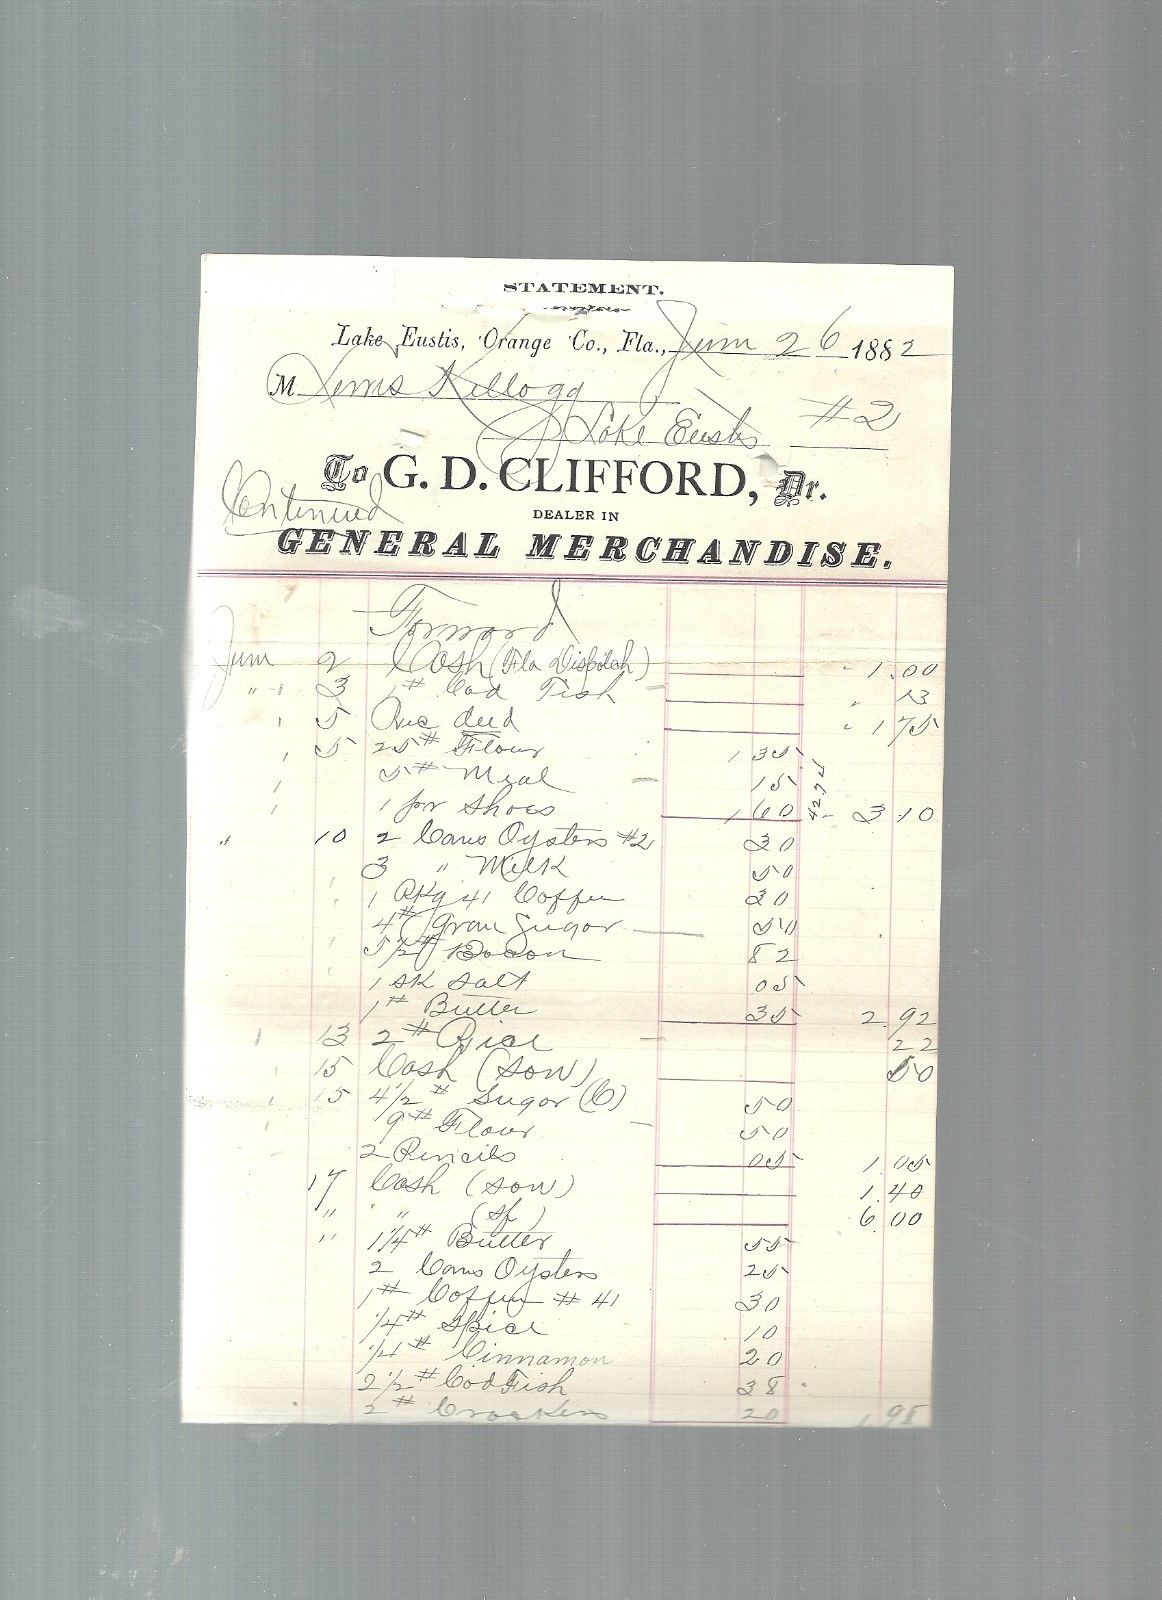 STATEMENT.
Lake Eustis, Orange Co., Fla., June 26 1882
M Lewis Kellogg
Lake Eustis #2
To G. D. CLIFFORD, Dr.
Continued
DEALER IN
GENERAL MERCHANDISE.
Forward
June 2 Cash (Fla Dispatch) 1.00
" 3 1# Cod Fish 13
5 Rec deed 1 75
5 25# Flour 1 35
5# Meal 15
1 pr Shoes 1 60 3 10
" 10 2 Cans Oysters #2 30
3 " Milk 50
1 Pkg 41 Coffee 30
4# Gran Sugar 50
5 1/2# Bacon 82
1 sk Salt 05
1# Butter 35 2.92
13 2# Rice 22
15 Cash (son) 50
15 4 1/2# Sugar (C) 50
9# Flour 50
2 Pencils 05 1.05
17 Cash (son) 1.40
" " (sf) 6.00
" 1 1/4# Butter 55
2 Cans Oysters 25
1# Coffee # 41 30
1/4# Spice 10
1/4# Cinnamon 20
2 1/2# Cod Fish 38
2# Crackers 20 1.98